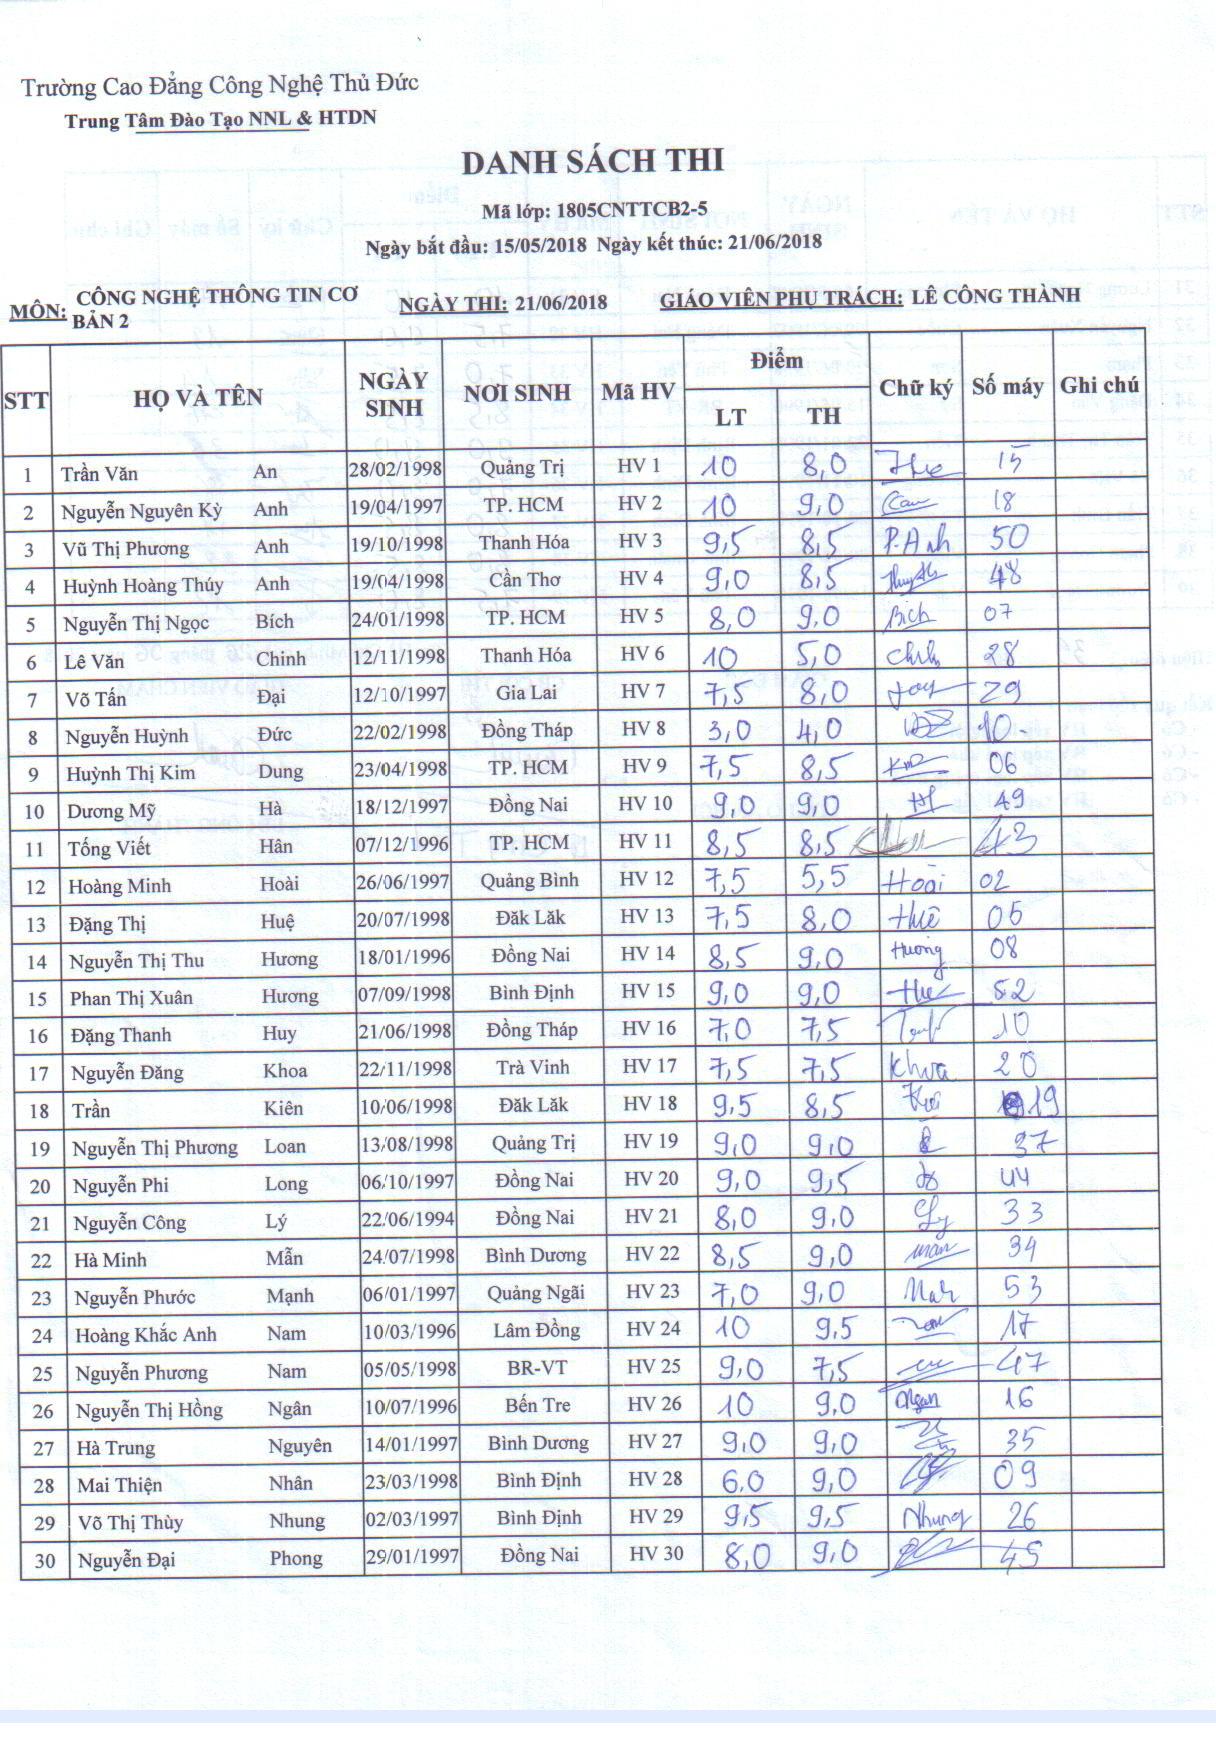 Trường Cao Đẳng Công Nghệ Thủ Đức
Trung Tâm Đào Tạo NNL & HTDN
DANH SÁCH THI
Mã lớp: 1805CNTTCB2-5
Ngày bắt đầu: 15/05/2018 Ngày kết thúc: 21/06/2018
MÔN: CÔNG NGHỆ THÔNG TIN CƠ BẢN 2 NGÀY THI: 21/06/2018 GIÁO VIÊN PHỤ TRÁCH: LÊ CÔNG THÀNH
STT HỌ VÀ TÊN NGÀY SINH NƠI SINH Mã HV Điểm LT TH Chữ ký Số máy Ghi chú
1 Trần Văn An 28/02/1998 Quảng Trị HV 1 10 8,0 15
2 Nguyễn Nguyên Kỳ Anh 19/04/1997 TP. HCM HV 2 10 9,0 18
3 Vũ Thị Phương Anh 19/10/1998 Thanh Hóa HV 3 9,5 8,5 P.Anh 50
4 Huỳnh Hoàng Thúy Anh 19/04/1998 Cần Thơ HV 4 9,0 8,5 48
5 Nguyễn Thị Ngọc Bích 24/01/1998 TP. HCM HV 5 8,0 9,0 Bich 07
6 Lê Văn Chinh 12/11/1998 Thanh Hóa HV 6 10 5,0 28
7 Võ Tấn Đại 12/10/1997 Gia Lai HV 7 7,5 8,0 29
8 Nguyễn Huỳnh Đức 22/02/1998 Đồng Tháp HV 8 3,0 4,0 10
9 Huỳnh Thị Kim Dung 23/04/1998 TP. HCM HV 9 7,5 8,5 06
10 Dương Mỹ Hà 18/12/1997 Đồng Nai HV 10 9,0 9,0 49
11 Tống Viết Hân 07/12/1996 TP. HCM HV 11 8,5 8,5 43
12 Hoàng Minh Hoài 26/06/1997 Quảng Bình HV 12 7,5 5,5 Hoài 02
13 Đặng Thị Huệ 20/07/1998 Đăk Lăk HV 13 7,5 8,0 Huê 05
14 Nguyễn Thị Thu Hương 18/01/1996 Đồng Nai HV 14 8,5 9,0 Hương 08
15 Phan Thị Xuân Hương 07/09/1998 Bình Định HV 15 9,0 9,0 52
16 Đặng Thanh Huy 21/06/1998 Đồng Tháp HV 16 7,0 7,5 10
17 Nguyễn Đăng Khoa 22/11/1998 Trà Vinh HV 17 7,5 7,5 Khoa 20
18 Trần Kiên 10/06/1998 Đăk Lăk HV 18 9,5 8,5 19
19 Nguyễn Thị Phương Loan 13/08/1998 Quảng Trị HV 19 9,0 9,0 37
20 Nguyễn Phi Long 06/10/1997 Đồng Nai HV 20 9,0 9,5 44
21 Nguyễn Công Lý 22/06/1994 Đồng Nai HV 21 8,0 9,0 Ly 33
22 Hà Minh Mẫn 24/07/1998 Bình Dương HV 22 8,5 9,0 man 34
23 Nguyễn Phước Mạnh 06/01/1997 Quảng Ngãi HV 23 7,0 9,0 53
24 Hoàng Khắc Anh Nam 10/03/1996 Lâm Đồng HV 24 10 9,5 17
25 Nguyễn Phương Nam 05/05/1998 BR-VT HV 25 9,0 7,5 47
26 Nguyễn Thị Hồng Ngân 10/07/1996 Bến Tre HV 26 10 9,0 Ngan 16
27 Hà Trung Nguyên 14/01/1997 Bình Dương HV 27 9,0 9,0 35
28 Mai Thiện Nhân 23/03/1998 Bình Định HV 28 6,0 9,0 09
29 Võ Thị Thùy Nhung 02/03/1997 Bình Định HV 29 9,5 9,5 Nhung 26
30 Nguyễn Đại Phong 29/01/1997 Đồng Nai HV 30 8,0 9,0 45